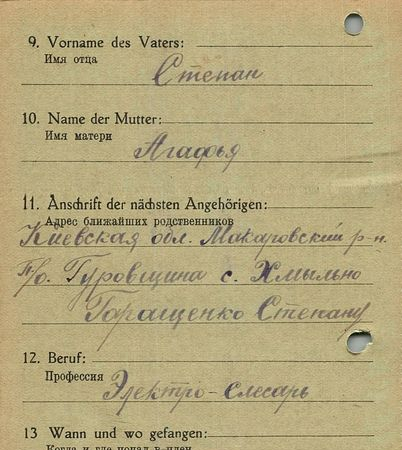 9. Vorname des Vaters:
Имя отца
Степан
10. Name der Mutter:
Имя матери
Агафья
11. Anschrift der nächsten Angehörigen:
Адрес ближайших родственников
Киевская обл. Макаровский р-н.
п/о. Гуровщина с. Хмыльно
Гаращенко Степану
12. Beruf:
Профессия
Электро-слесарь
13 Wann und wo gefangen:
Когда и где попал в плен